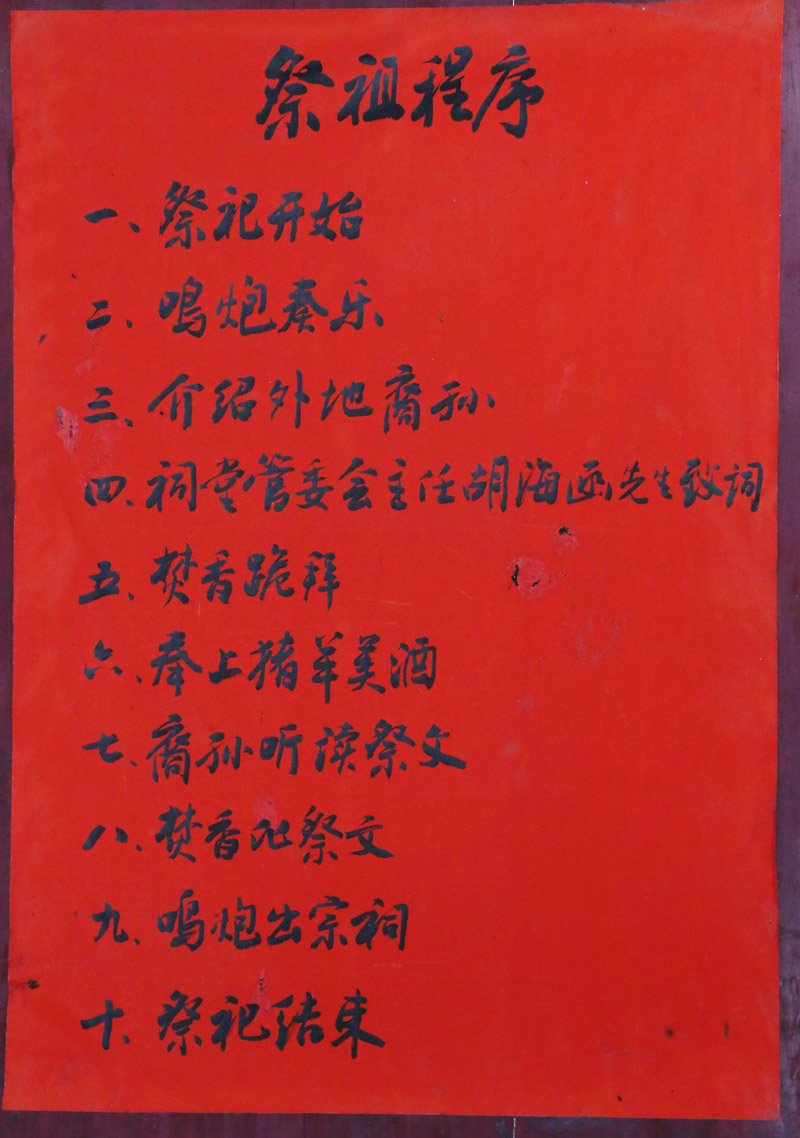 祭祖程序
一、祭祀开始
二、鸣炮奏乐
三、介绍外地裔孙
四、祠堂管委会主任胡海函先生致词
五、焚香跪拜
六、奉上猪羊美酒
七、裔孙听读祭文
八、焚香化祭文
九、鸣炮出宗祠
十、祭祀结束